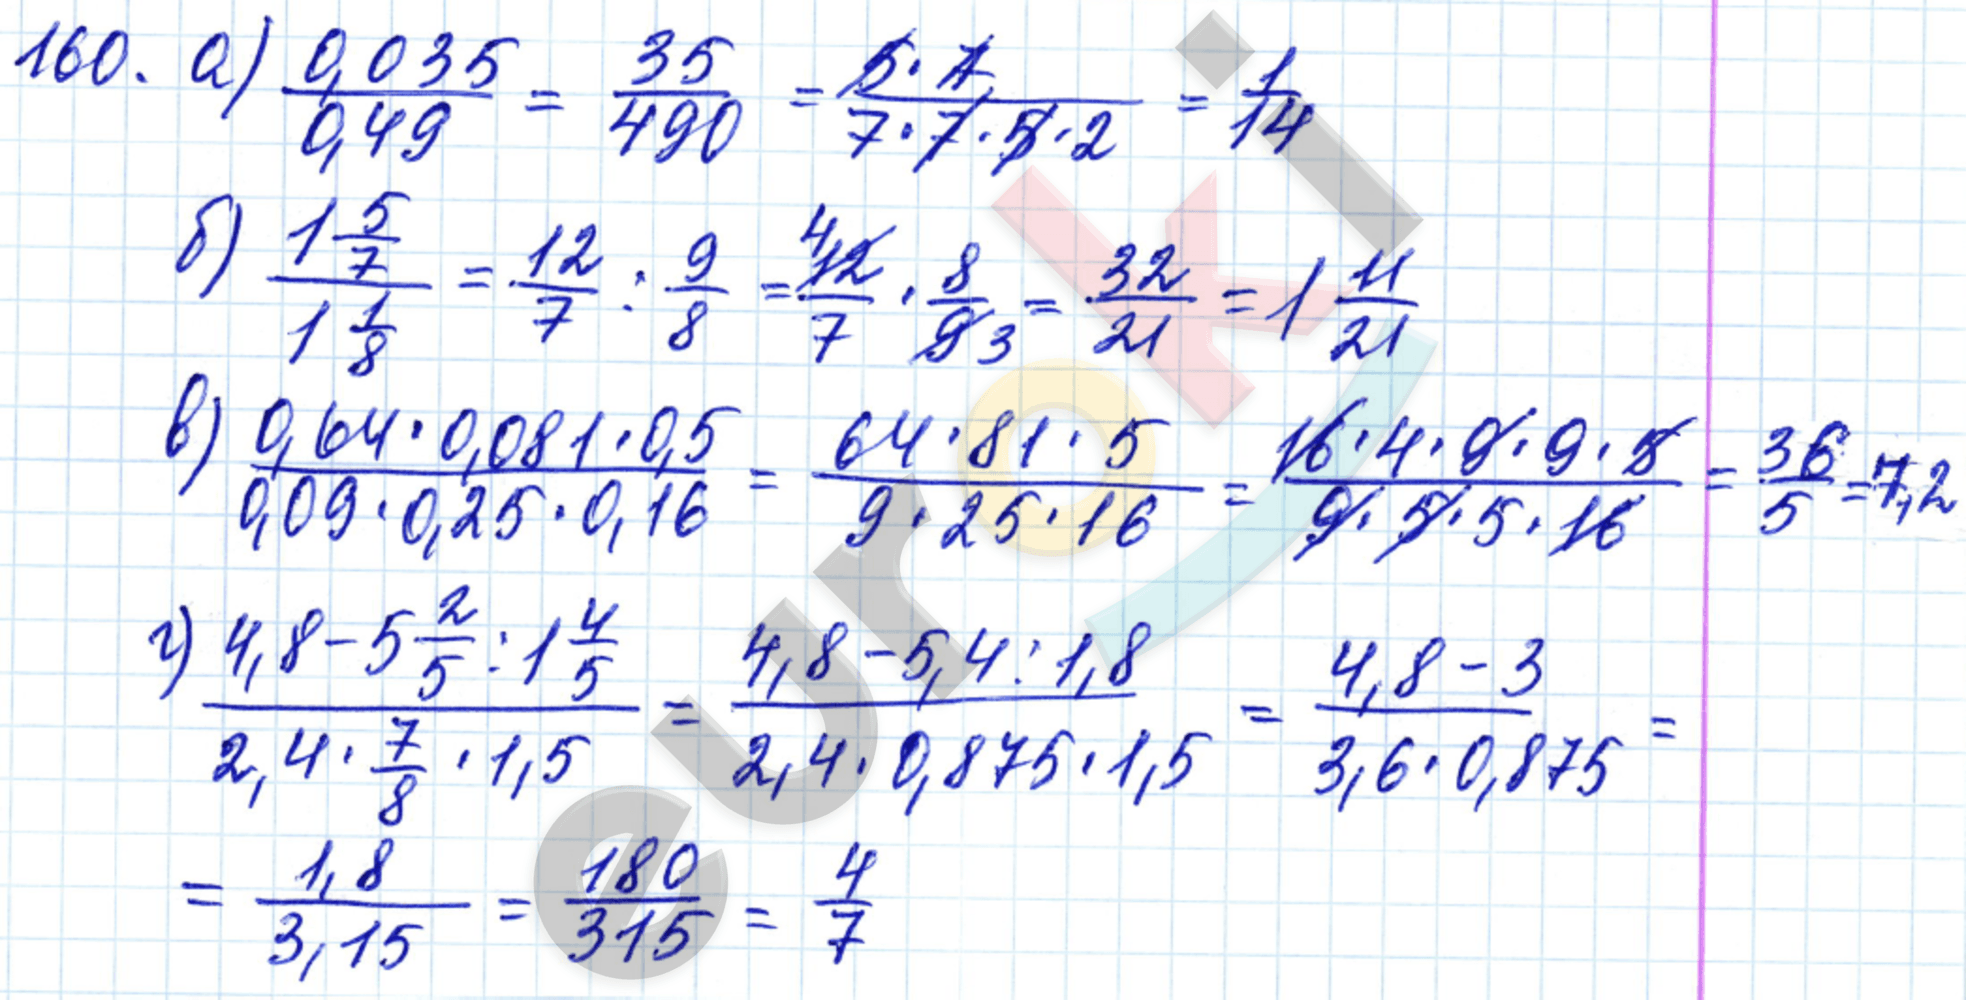 160. а) 0,035/0,49 = 35/490 = 5·7/7·7·5·2 = 1/14
б) 1 5/7 / 1 1/8 = 12/7 : 9/8 = 4 12/7 · 8/9 3 = 32/21 = 1 11/21
в) 0,64·0,081·0,5/0,09·0,25·0,16 = 64·81·5/9·25·16 = 16·4·9·9·5/9·5·5·16 = 36/5 = 7,2
г) 4,8-5 2/5 : 1 4/5 / 2,4·7/8·1,5 = 4,8-5,4:1,8/2,4·0,875·1,5 = 4,8-3/3,6·0,875 =
= 1,8/3,15 = 180/315 = 4/7
euroki